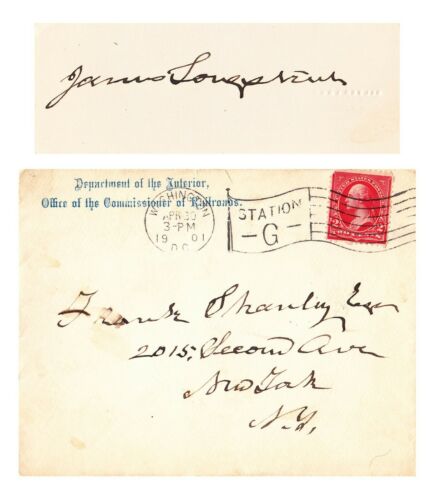 James Longstreet
Department of the Interior,
Office of the Commissioner of Railroads.
WASHINGTON
APR 30
3-PM
1901
D.C.
STATION
-G-
2 2
Frank Shanley Esqr
2015, Second Ave
New York
N.Y.